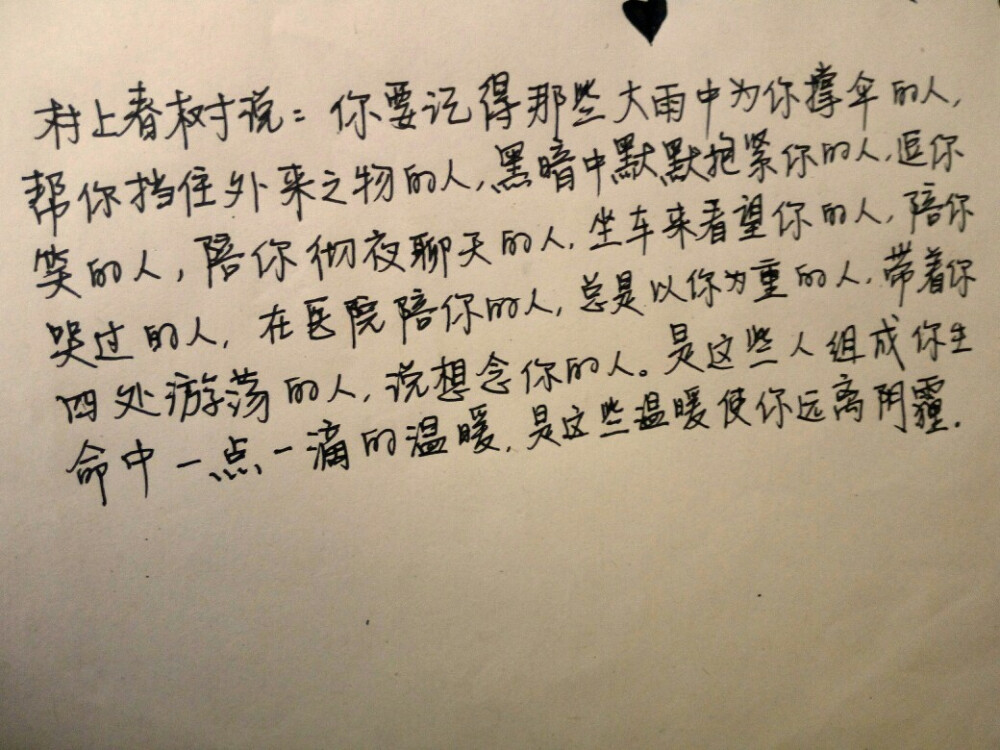 村上春树说：你要记得那些大雨中为你撑伞的人,
帮你挡住外来之物的人,黑暗中默默抱紧你的人,逗你
笑的人,陪你彻夜聊天的人,坐车来看望你的人,陪你
哭过的人,在医院陪你的人,总是以你为重的人,带着你
四处游荡的人,说想念你的人。是这些人组成你生
命中一点一滴的温暖,是这些温暖使你远离阴霾.